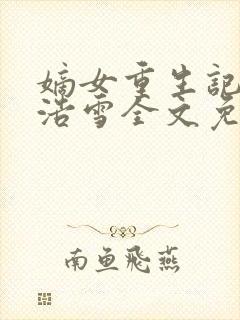 嫡女重生記
浩雪全文免
南鱼飛燕